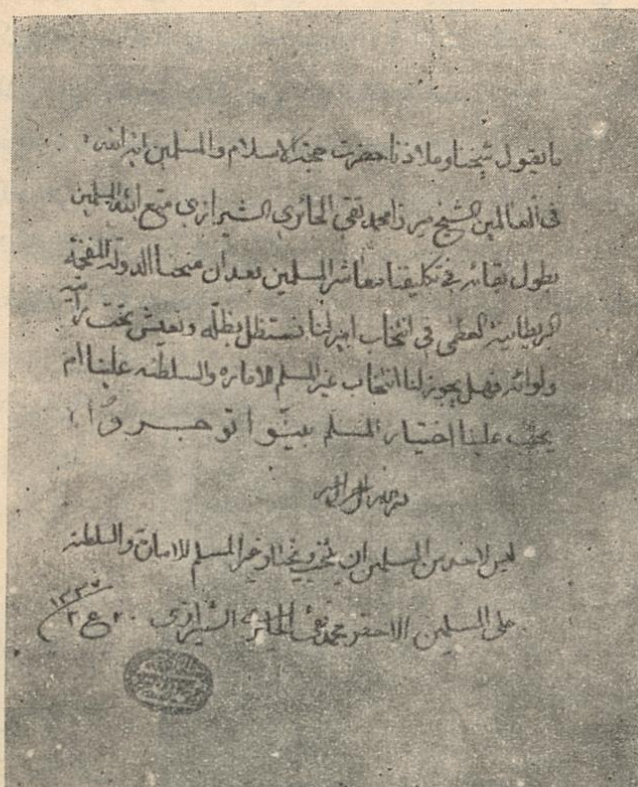 ما يقول شيخنا وملاذنا حضرت حجة الاسلام والمسلمين اية الله
فى العالمين الشيخ ميرزا محمد تقي الحائري الشيرازي متع الله المسلمين
بطول بقائه في تكليفنا معاشر المسلمين بعد ان منحنا الدولة المفخمة
البريطانية العظمى فى انتخاب امير لنا نستظل بظله ونعيش تحت رايته
ولوائه فهل يجوز لنا انتخاب غير المسلم للاماره والسلطنه علينا ام
يجب علينا اختيار المسلم بينوا توجروا
ليس لاحد من المسلمين ان ينتخب ويختار غير المسلم للامارة والسلطنه
على المسلمين الاحقر محمد تقي الحائري الشيرازي ٢٠ ع٢ ١٣٣٧